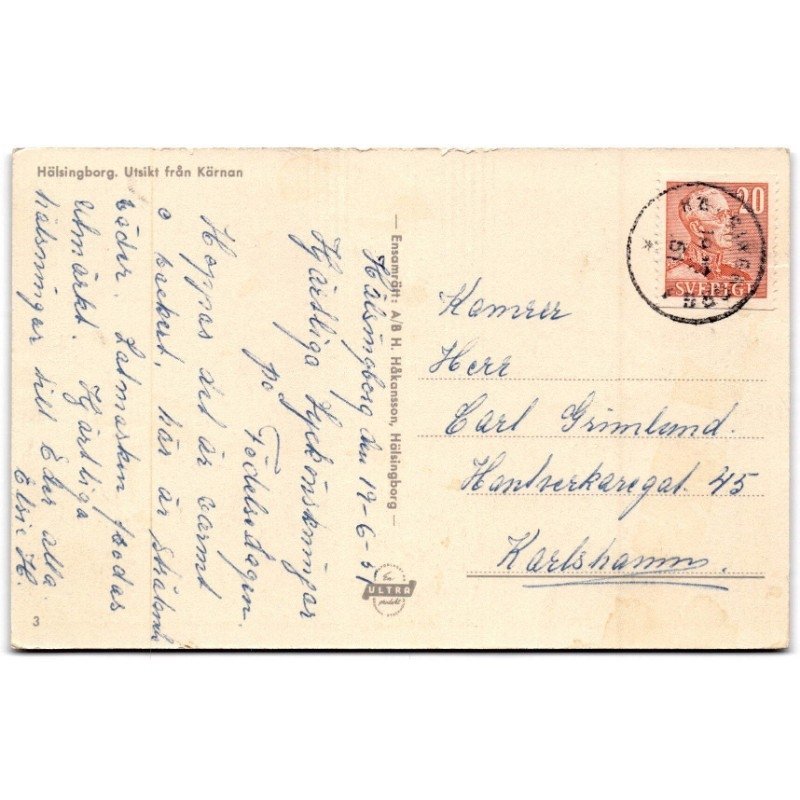 Hälsingborg. Utsikt från Kärnan
Hälsingborg den 19-6-51
Hjärtliga lyckönskningar
på
Födelsedagen.
Hoppas det är varmt
o vackert, här är strålande
väder. Latmasken frodas
utmärkt. Hjärtliga
hälsningar till Eder alla.
Elsie H.
3
— Ensamrätt: A/B H. Håkansson, Hälsingborg —
En
ULTRA
produkt
20
SVERIGE
19
51
Kamrer
Herr
Carl Grimlund.
Hantverkaregat 45
Karlshamn.